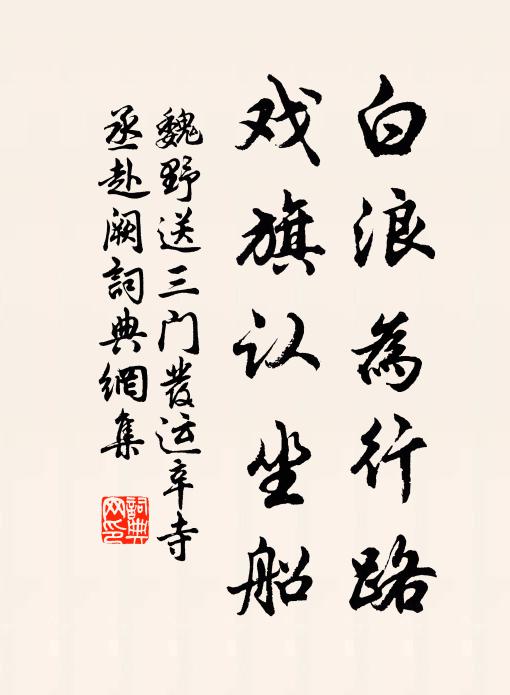 白浪為行路
戏旗认坐船
魏野送三门發运辛寺
丞赴阙詞典網集
詞典
网印